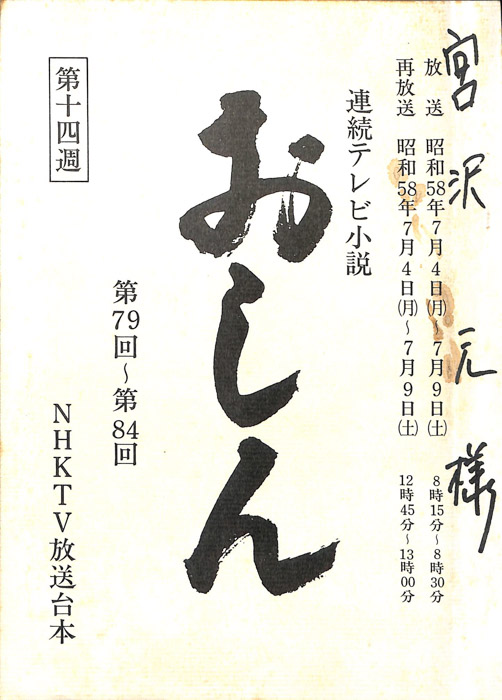 宮沢元様
放送 昭和58年7月4日(月)~7月9日(土) 8時15分~8時30分
再放送 昭和58年7月4日(月)~7月9日(土) 12時45分~13時00分
連続テレビ小説
おしん
第79回~第84回
第十四週
NHKTV放送台本